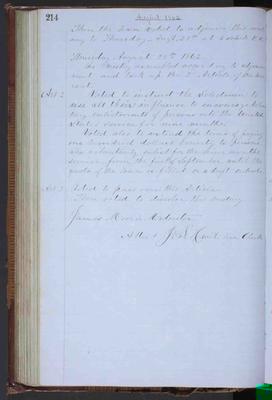 214
August 1862
Then the Town voted to adjourn this meeting
to Thursday Augt. 28th at 2 oclock P.M.
Thursday August 28th 1862.
The Meeting assembled according to adjournment
and took up the 2d Article of the Warrant
Art 2 Voted to instruct the Selectmen to
use all their influence to encourage voluntary
enlistments of persons into the United
States service for nine months.
Voted also to extend the time of paying
one hundred dollars bounty to persons
who voluntarily enlist for the nine months
service, from the first of September until the
quota of the town is filled or a draft ordered.
Art 3 Voted to pass over this Article.
Then voted to dissolve this meeting
James Moderator
Attest Town Clerk